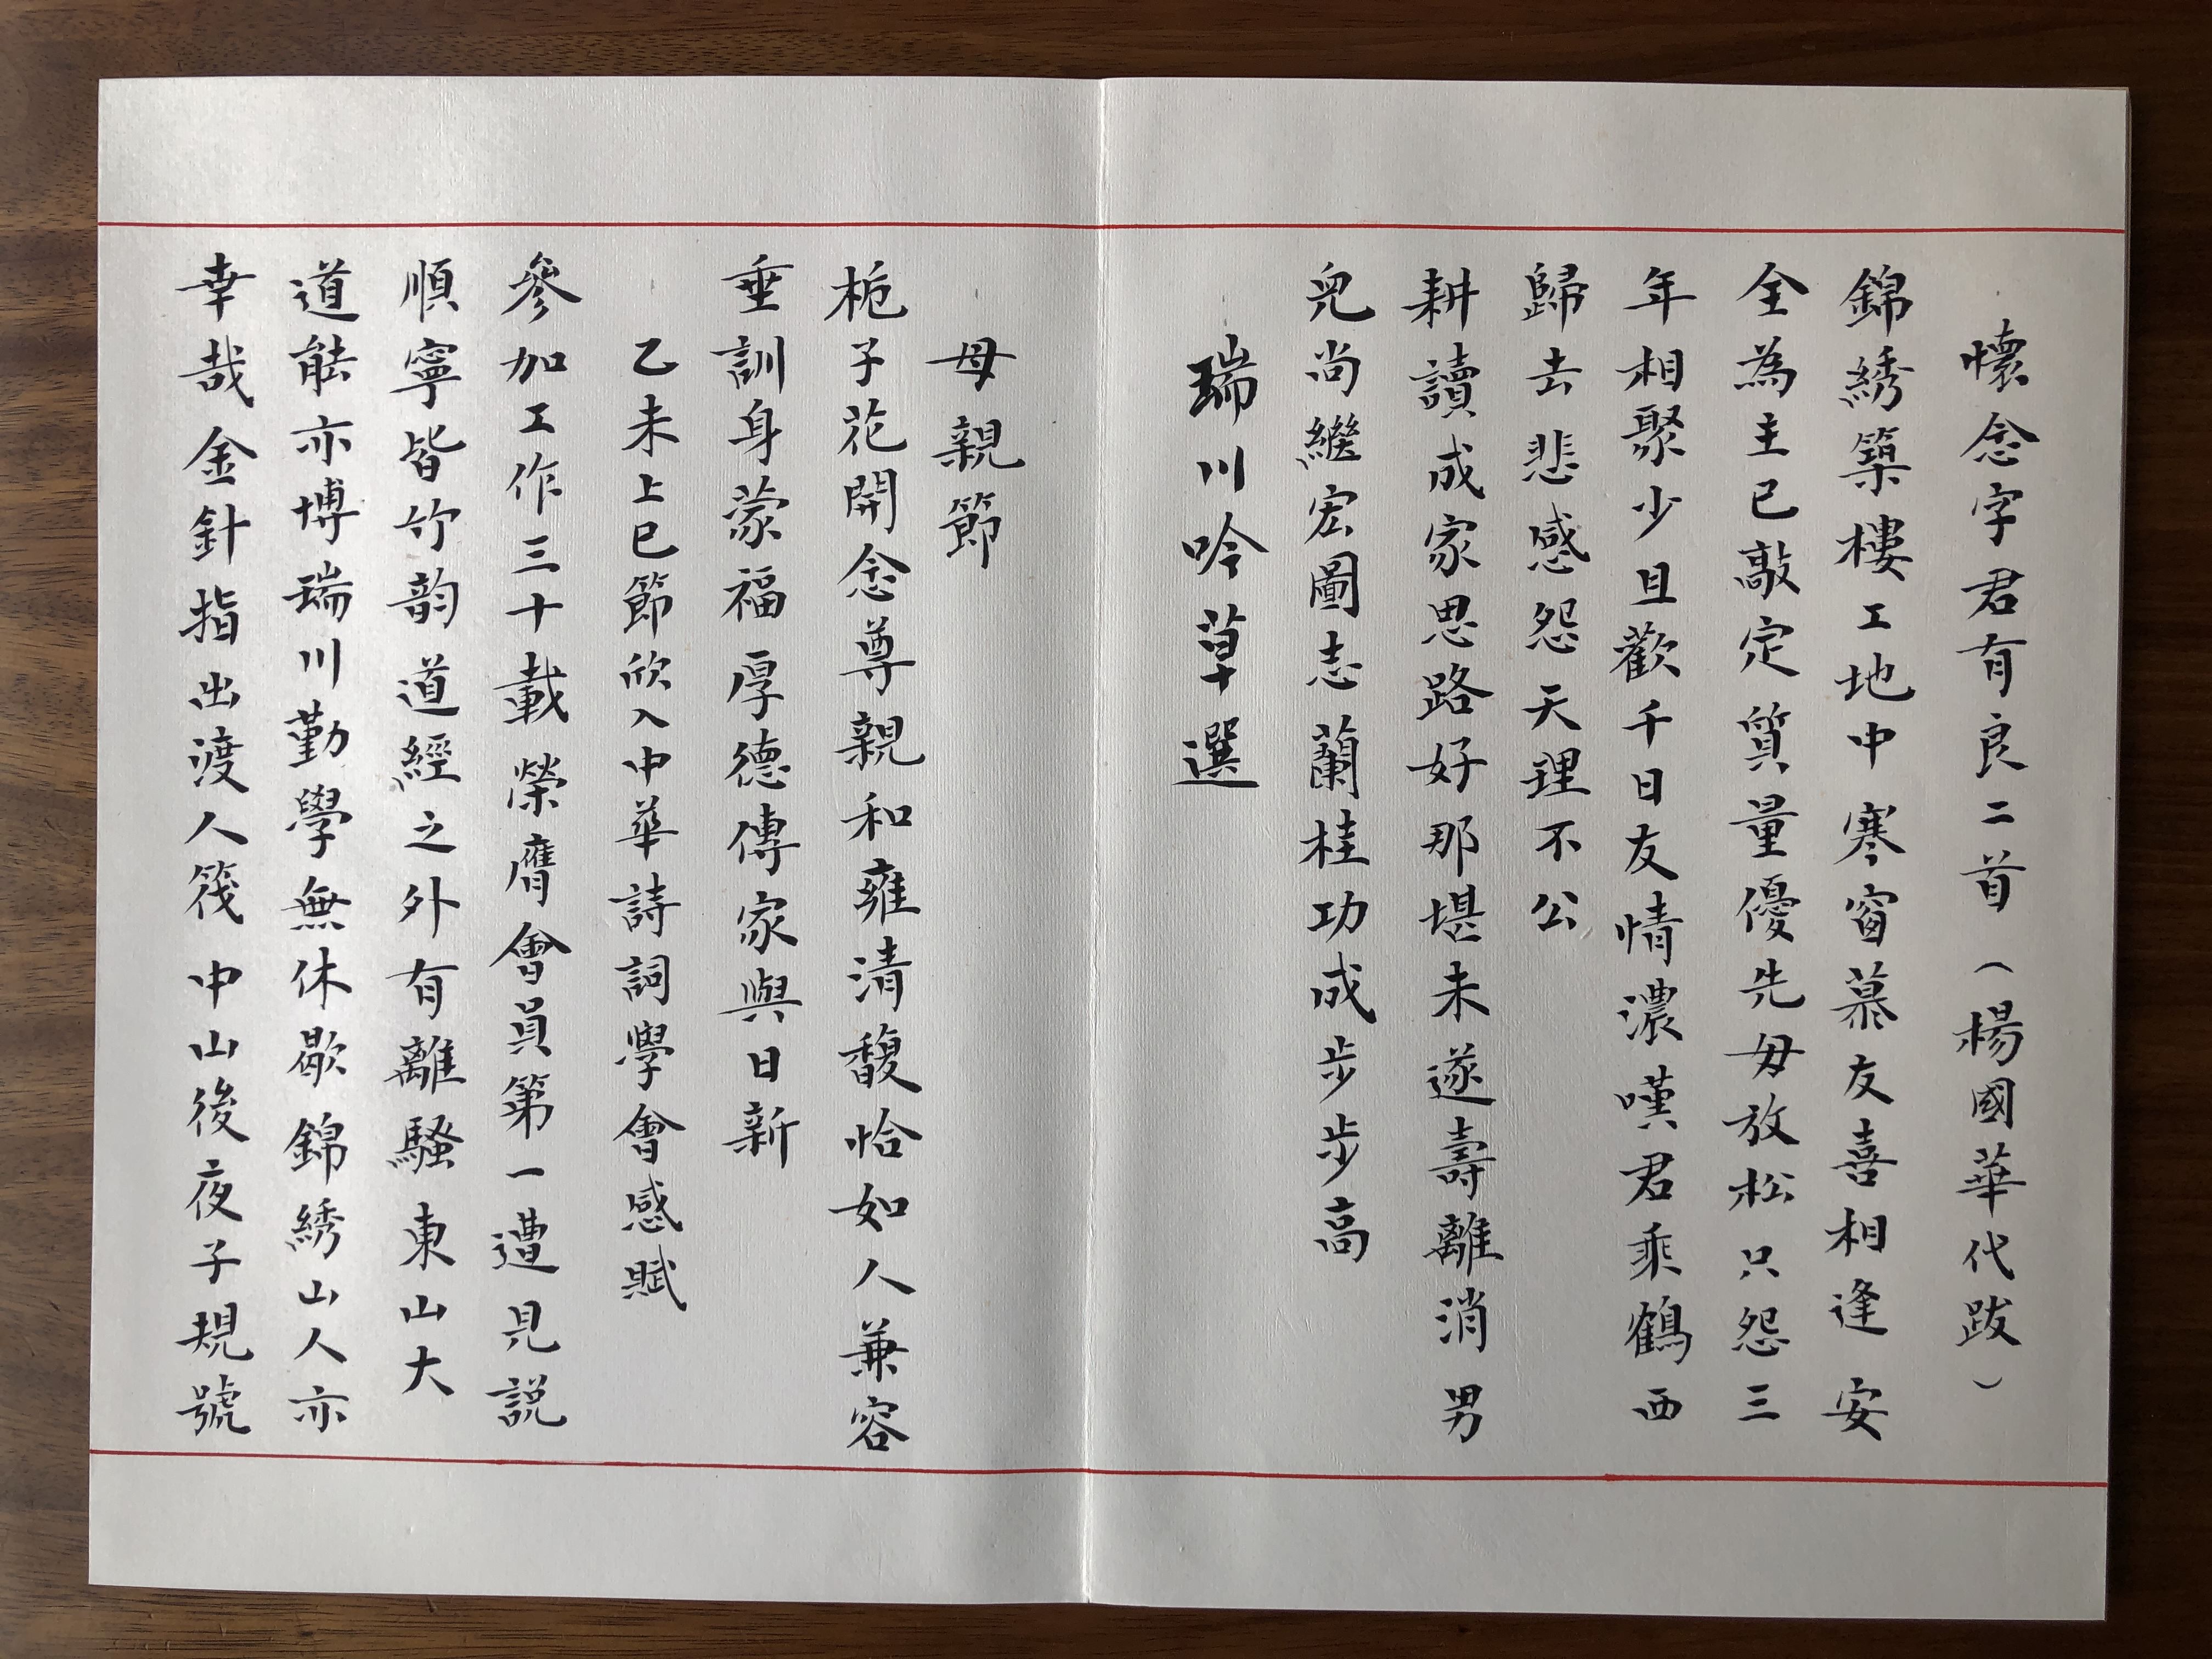 懷念字君有良二首（楊國華代跋）
錦綉築樓工地中寒窗慕友喜相逢安
全為主已敲定質量優先毋放松只怨三
年相聚少且歡千日友情濃嘆君乘鶴西
歸去悲感怨天理不公
耕讀成家思路好那堪未遂壽離消男
兒尚繼宏圖志蘭桂功成步步高
瑞川吟草選
母親節
栀子花開念尊親和雍清馥恰如人兼容
垂訓身蒙福厚德傳家與日新
乙未上巳節欣入中華詩詞學會感賦
參加工作三十載榮膺會員第一遭見説
順寧皆竹韵道經之外有離騷東山大
道能亦博瑞川勤學無休歇錦綉山人亦
幸哉金針指出渡人筏中山後夜子規號